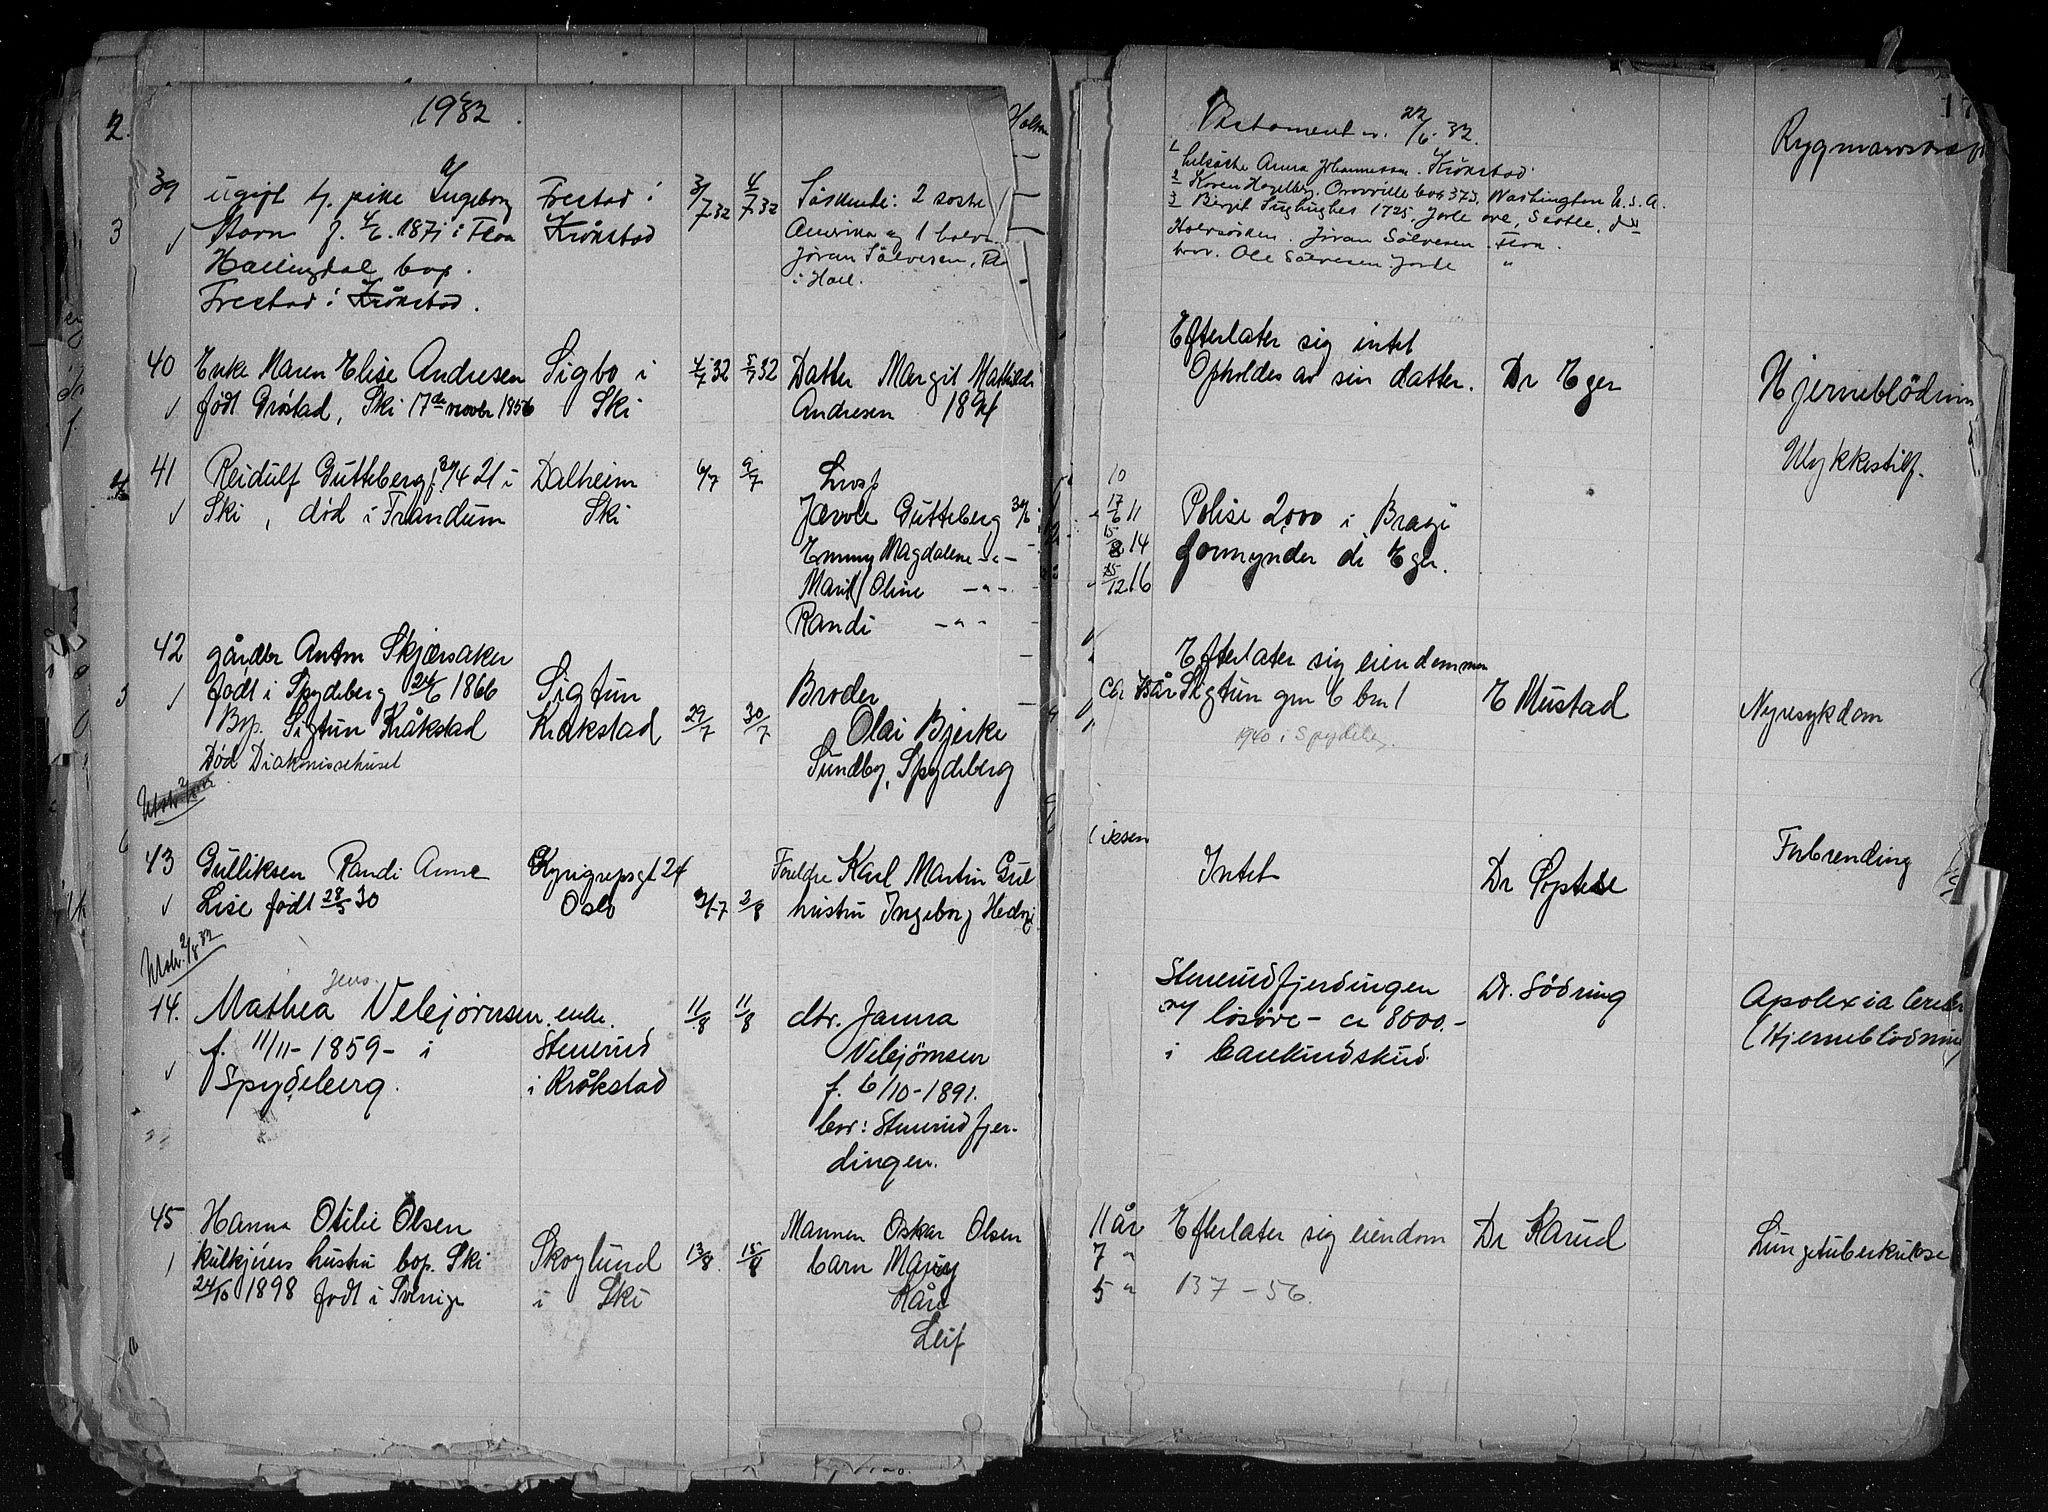 1932.
39 ugift tj. pike Ingeborg
f. 1871 i Flaa
Hallingdal bop.
Frestad i Kråkstad.
Frestad i
Kråkstad
3/7 32
4/7 32
Søskende: 2 søstre
Amerika og 1 halvbr
Jøran Sålvesen, Fla
i Hall.
Testament v. 22/6.32.
1 Anna Johannessen. Kråkstad
2 Karen Hagelberg. Oroville box 373, Washington U.S.A.
3 Birgit 1725, ave, Seatle, do
Halvsøsken. Jøran Sålvesen Flaa.
bror. Ole Sålvesen "
Rygmarvs
40 Enke Maren Elise Andresen
født Grøstad, Ski 17de novbr 1856
Sigbo i
Ski
4/7 32
5/7 32
Datter Margit Mathilde
Andresen 1894
Efterlater sig intet
Opholdes av sin datter.
Dr Eger
Hjerneblödning
41 Reidulf Gutteberg f. 30/4 21 i
Ski, död i Frandum
Dalheim
Ski
6/7
9/7
Gutteberg
Emmy Magdalene - " -
Marit Oline - " -
Randi - " -
10
17/6 11
15/8 14
15/12 16
Polise 2000 i Brage
formynder dr Eger.
Ulykkestilf.
42 gårdbr Anton Skjærsaker
født i Spydeberg 24/6 1866
Bop. Sigtun Kråkstad
Död Diakonissehuset
Sigtun
Kråkstad
29/7
30/7
Broder
Olai Bjerke
Sundby, Spydeberg
Efterlater sig eiendommen
Sigtun gnr 6 bnr 1
1940 i Spydeberg.
E Mustad
Nyresykdom
43 Gulliksen Randi Anne
Lise født 28/3 30
24
Oslo
31/7
2/8
Foreldre Karl Martin Gul
hustru Ingeborg Hedvig
iksen
Intet
Dr
Forbrending
Utskr. 2/8 32
Jens.
44. Mathea Vebjørnsen, enke.
f. 11/11 - 1859 - i
Spydeberg.
Stenerud
i Kråkstad
11/8
11/8
dtr. Janna
Vebjørnsen
f. 6/10 - 1891.
bor: Stenerudfjer-
dingen.
Stenerudfjerdingen
m/ løsøre - ca 8000.-
i
Dr. Södring
Apolexia cerebr
(Hjerneblödning
45 Hanna Otilie Olsen
kulkjörers hustru bop. Ski
24/10 1898 født i Sverige
Skoglund
i Ski
13/8
15/8
Mannen Oskar Olsen
barn
Kåre
Leif
11 år
7 "
5 "
Efterlater sig eiendom
137 - 56.
Dr Karud
Lungetuberkulose